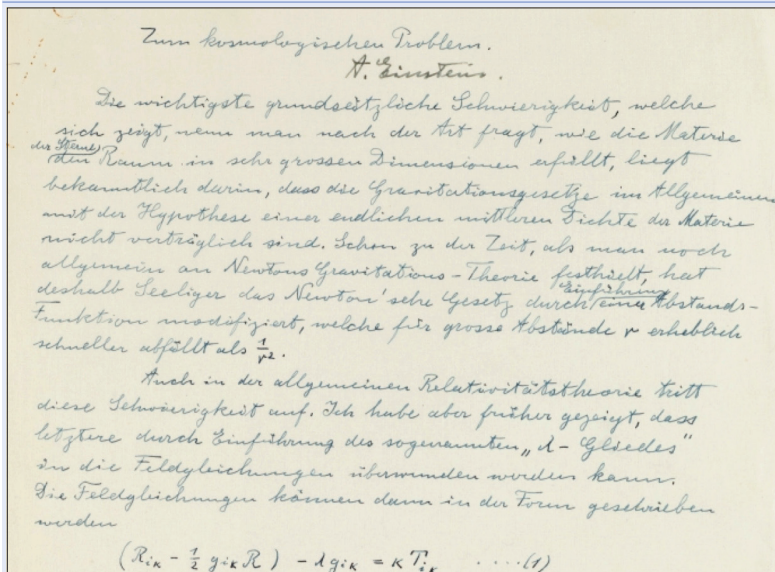 Zum kosmologischen Problem.
A. Einstein.
Die wichtigste grundsätzliche Schwierigkeit, welche
sich zeigt, wenn man nach der Art fragt, wie die Materie
der Sterne
den Raum in sehr grossen Dimensionen erfüllt, liegt
bekanntlich darin, dass die Gravitationsgesetze im Allgemeinen
mit der Hypothese einer endlichen mittleren Dichte der Materie
nicht verträglich sind. Schon zu der Zeit, als man noch
allgemein an Newtons Gravitations-Theorie festhielt, hat
Einführung
deshalb Seeliger das Newton'sche Gesetz durch einer Abstands-
Funktion modifiziert, welche für grosse Abstände r erheblich
schneller abfällt als 1/r².
Auch in der allgemeinen Relativitätstheorie tritt
diese Schwierigkeit auf. Ich habe aber früher gezeigt, dass
letztere durch Einführung des sogenannten „λ-Gliedes"
in die Feldgleichungen überwunden werden kann.
Die Feldgleichungen können dann in der Form geschrieben
werden
(R_ik - 1/2 g_ik R) - λ g_ik = κ T_ik .....(1)